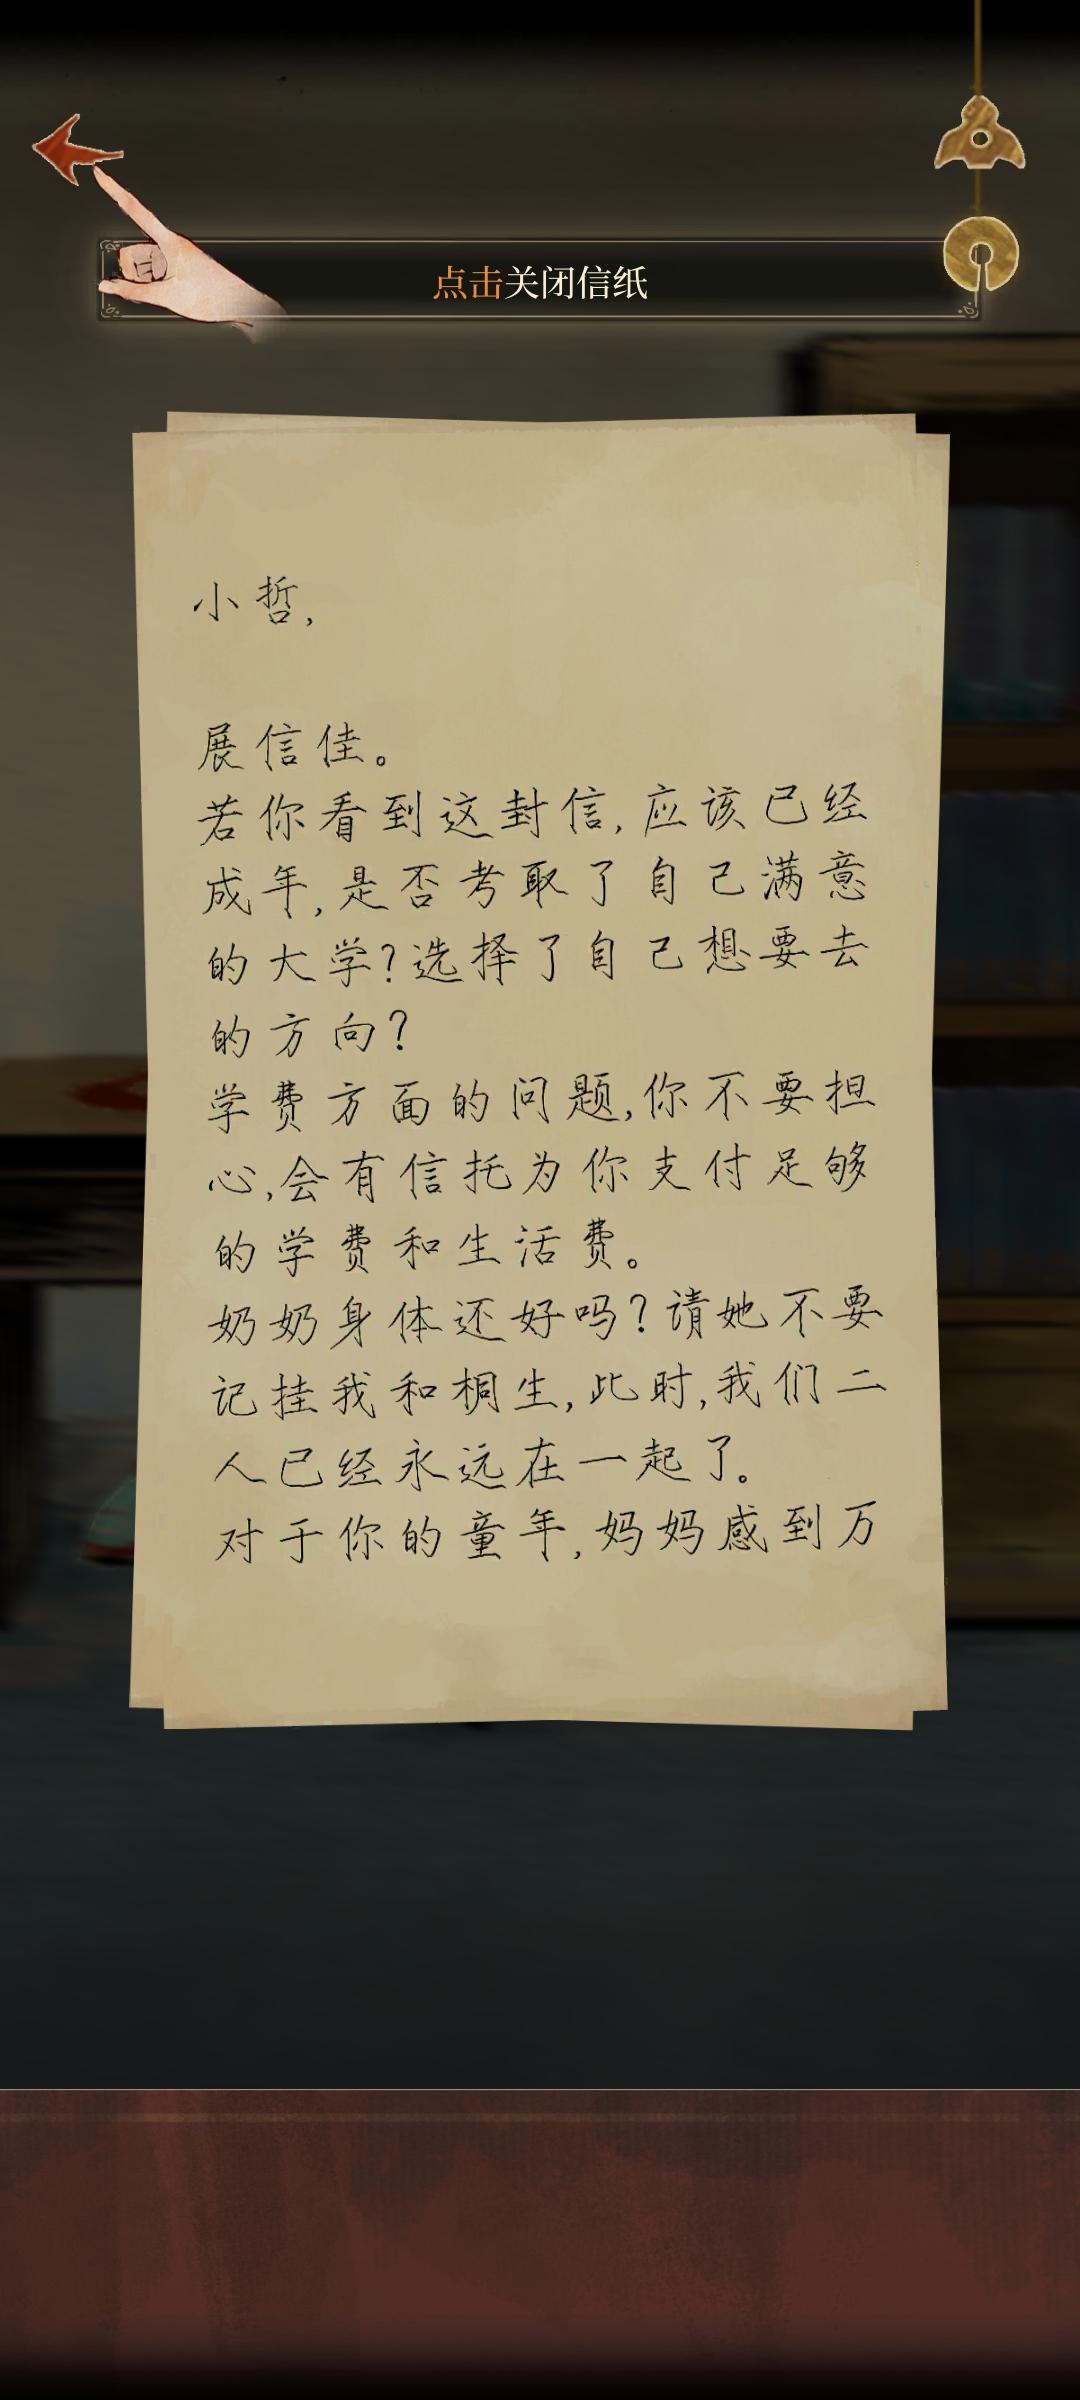 点击关闭信纸
小哲,
展信佳。
若你看到这封信,应该已经
成年,是否考取了自己满意
的大学?选择了自己想要去
的方向?
学费方面的问题,你不要担
心,会有信托为你支付足够
的学费和生活费。
奶奶身体还好吗?请她不要
记挂我和桐生,此时,我们二
人已经永远在一起了。
对于你的童年,妈妈感到万